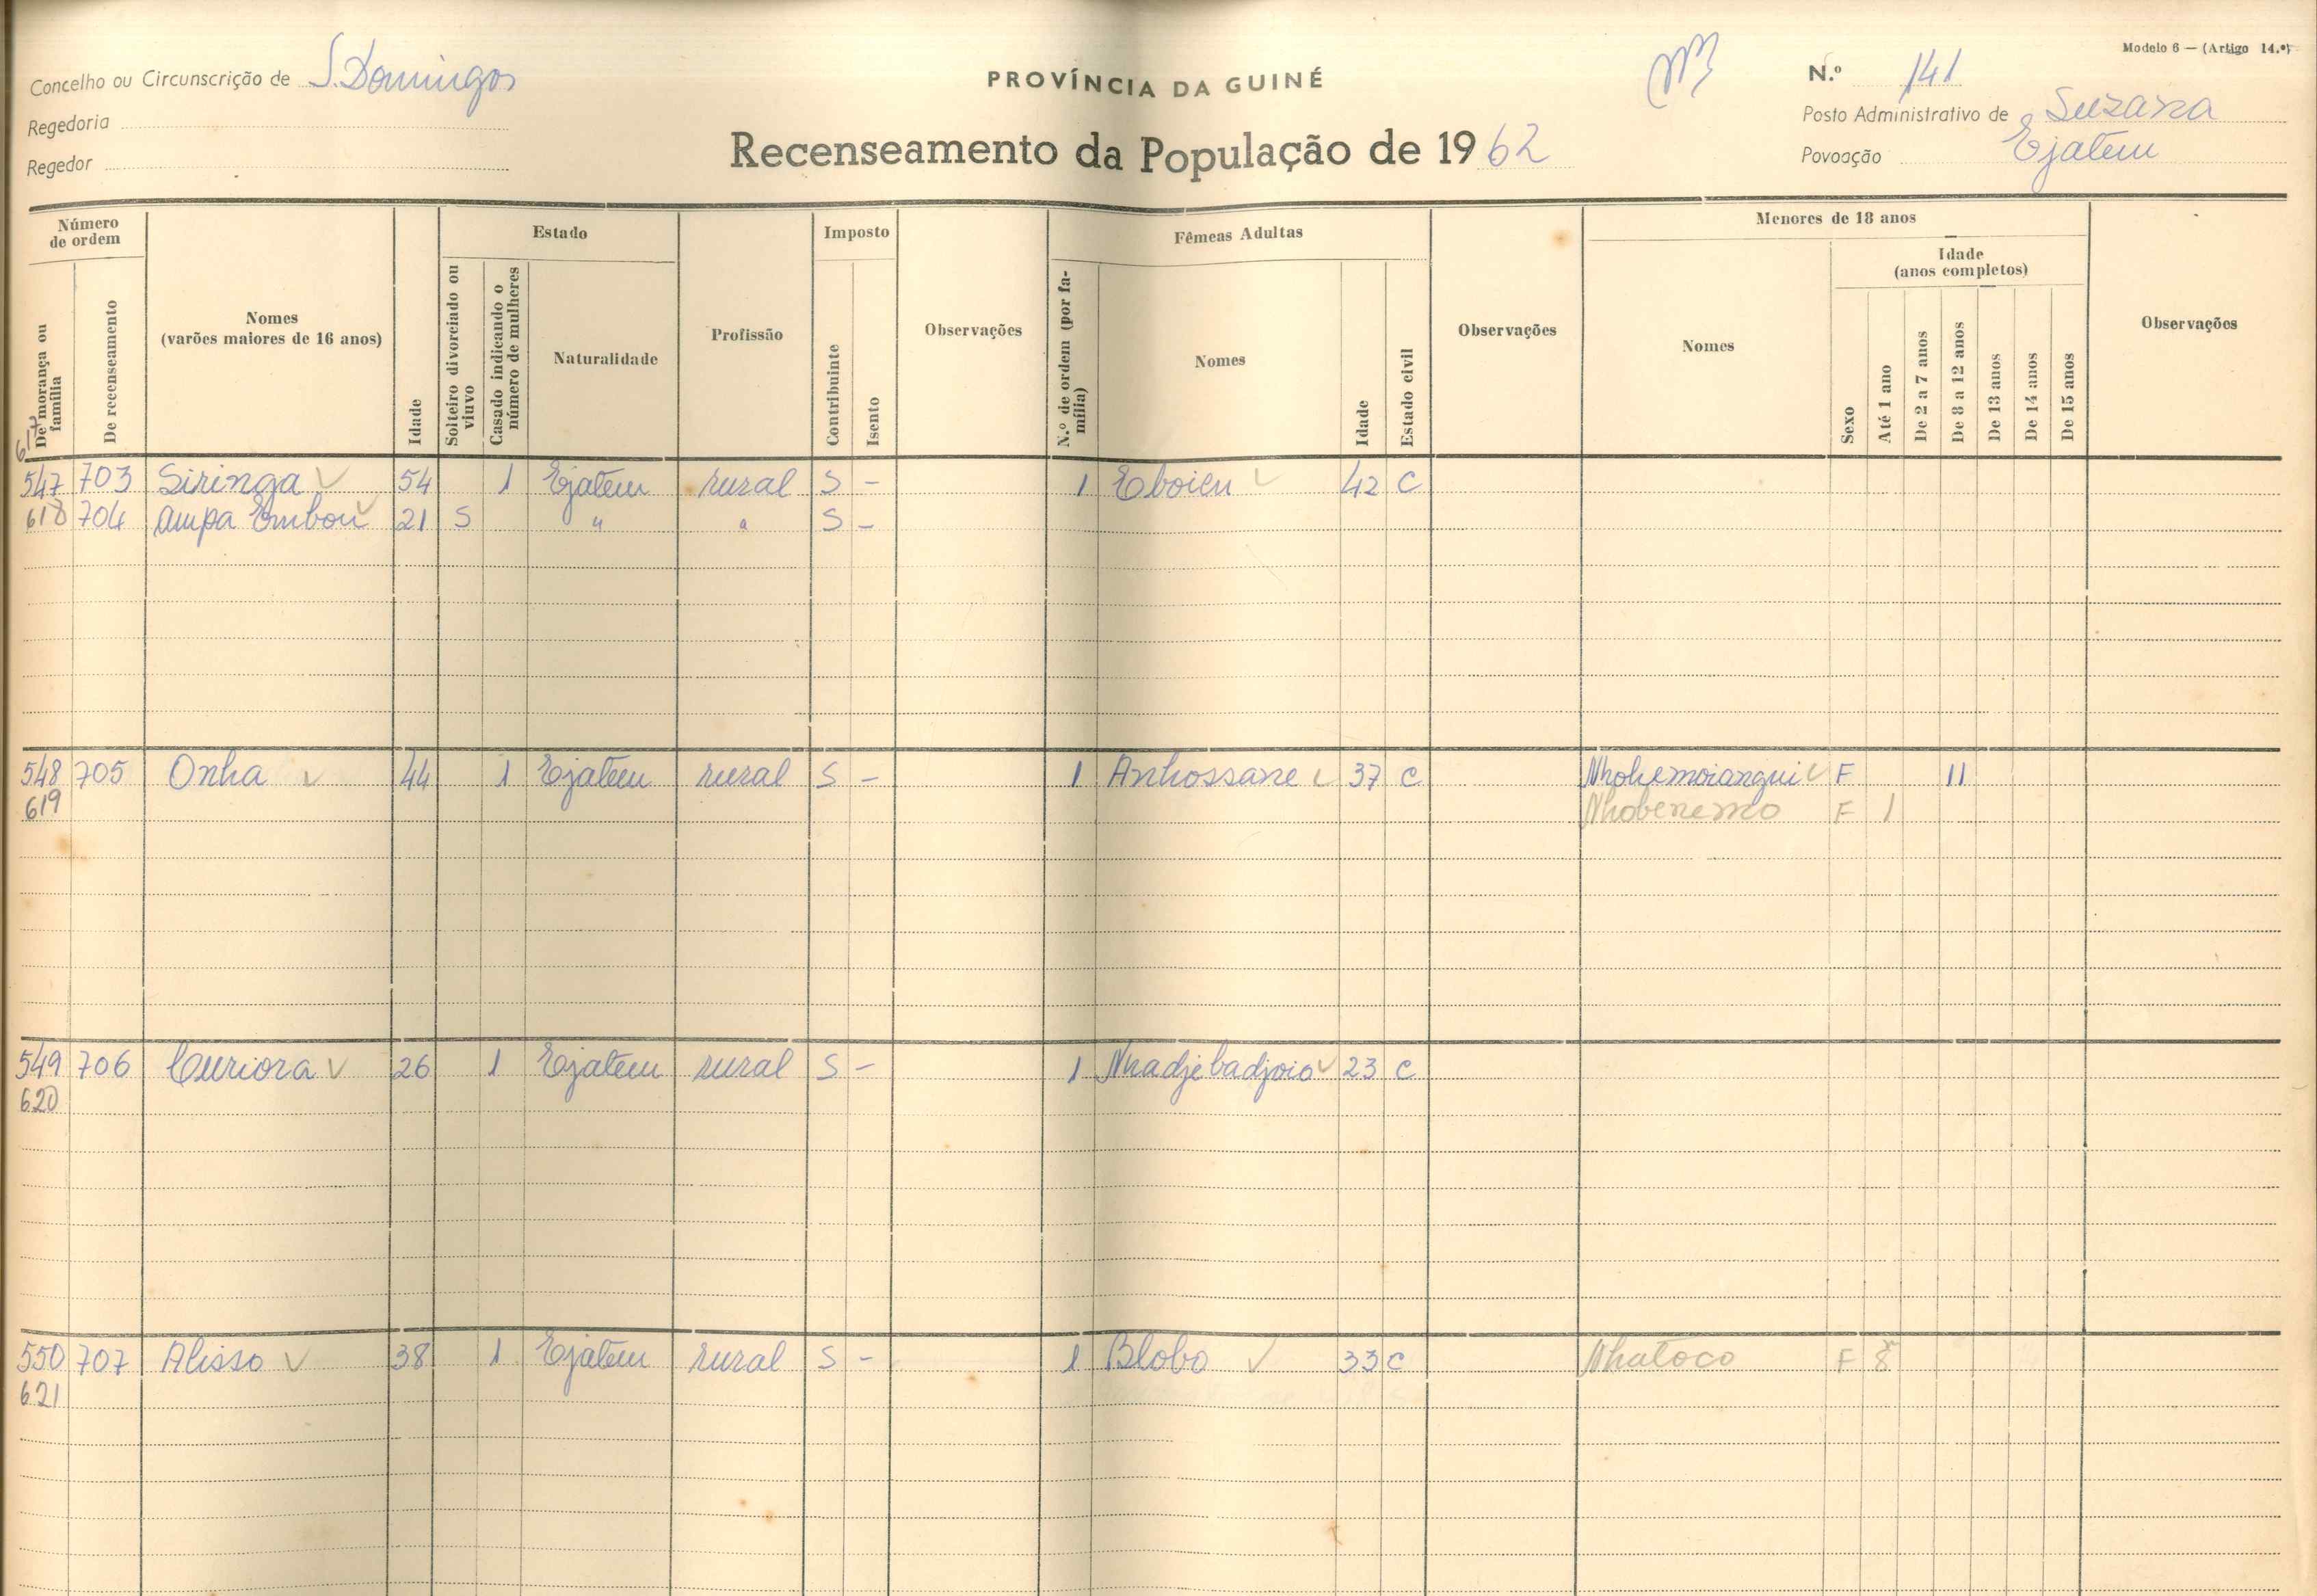 Modelo 6 — (Artigo 14.º)
Concelho ou Circunscrição de S. Domingos
PROVÍNCIA DA GUINÉ
N.º 141
Regedoria
Posto Administrativo de Suzana
Regedor
Recenseamento da População de 1962
Povoação Ejatem
Número de ordem
Estado
Imposto
Fêmeas Adultas
Menores de 18 anos
Idade
(anos completos)
De morança ou família
De recenseamento
Nomes
(varões maiores de 16 anos)
Idade
Solteiro divorciado ou viuvo
Casado indicando o número de mulheres
Naturalidade
Profissão
Contribuinte
Isento
Observações
N.º de ordem (por família)
Nomes
Idade
Estado civil
Observações
Nomes
Sexo
Até 1 ano
De 2 a 7 anos
De 8 a 12 anos
De 13 anos
De 14 anos
De 15 anos
Observações
617
547 703 Siringa 54 1 Ejatem rural S - 1 Eboieu 42 C
618 704 Ampa Embou 21 S " " S -
548 705 Onha 44 1 Ejatem rural S - 1 Anhossane 37 C Nhohemoiangui F 11
619 Nhobenemo F 1
549 706 Curiora 26 1 Ejatem rural S - 1 Nhadjebadjoio 23 C
620
550 707 Alisso 38 1 Ejatem rural S - 1 Blobo 33 C Nhatoco F 8
621